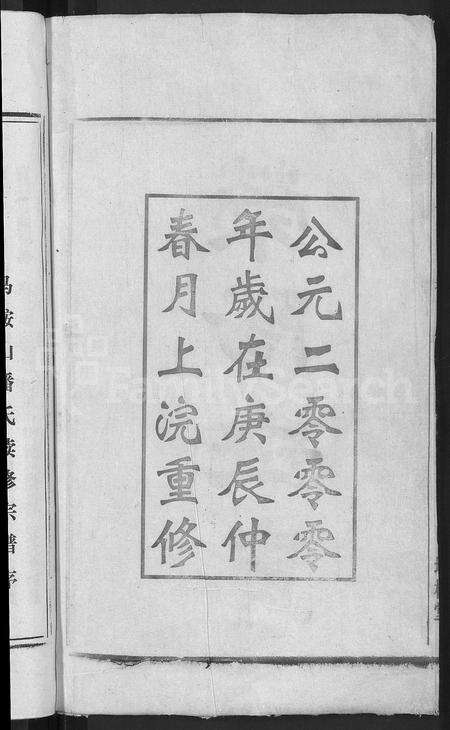 公元二零零零
年歲在庚辰仲
春月上浣重修
鞍山潘氏續修宗譜序
FamilySearch